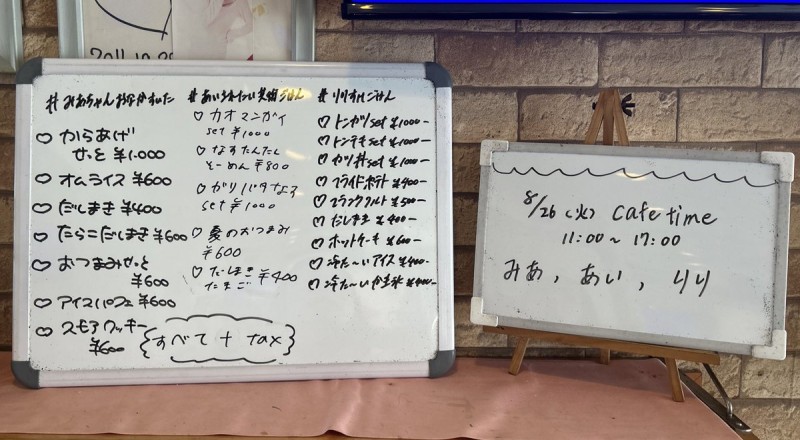 2011.10.29
# みあちゃんおなかすいた
♡ からあげ
せっと ¥1.000
♡ オムライス ¥600
♡ だしまき ¥400
♡ たらこだしまき ¥600
♡ おつまみせっと
¥600
♡ アイスパフェ ¥600
♡ スモアクッキー
¥600
ごはん
♡ カオマンガイ
set ¥1000
♡ なすたんたん
そーめん ¥800
♡ ガリバタなす
set ¥1000
♡ 夏のおつまみ
¥600
♡ だしまき
たまご ¥400
# りりすいごはん
♡ トンカツset ¥1000-
♡ トンテキset ¥1000-
♡ カツ丼set ¥1000-
♡ フライドポテト ¥400-
♡ フランクフルト ¥500-
♡ だしまき ¥400-
♡ ホットケーキ ¥600-
♡ 冷た〜いアイス ¥400-
♡ 冷た〜いかき氷 ¥400-
すべて + tax
8/26 (火) Cafe time
11:00〜17:00
みあ, あい, りり